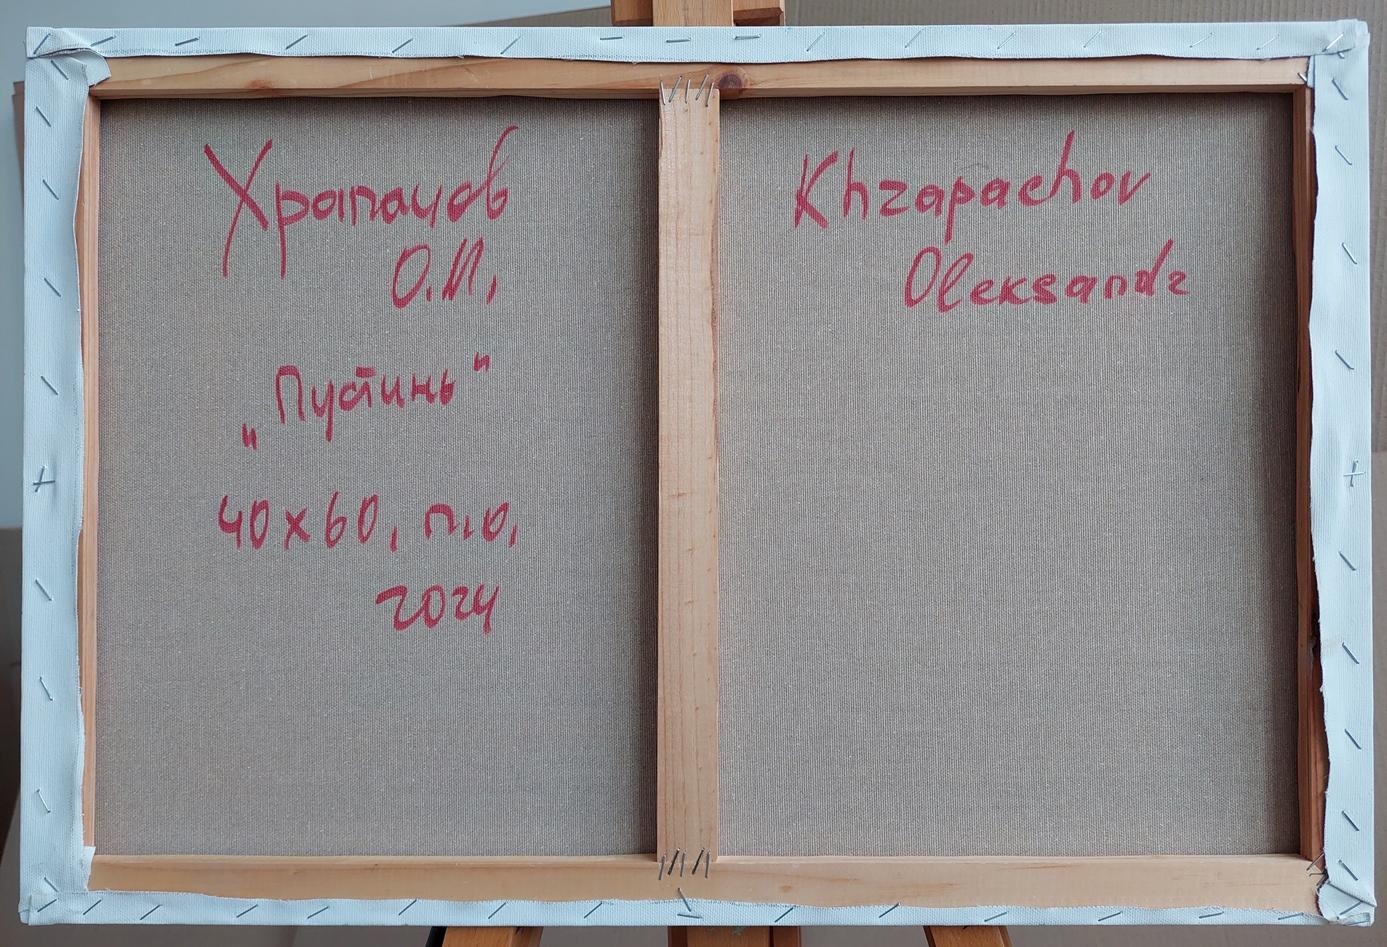 Храпачов
О.М,
„Пустинь“
40х60, п.о,
2024
Khrapachov
Oleksandr